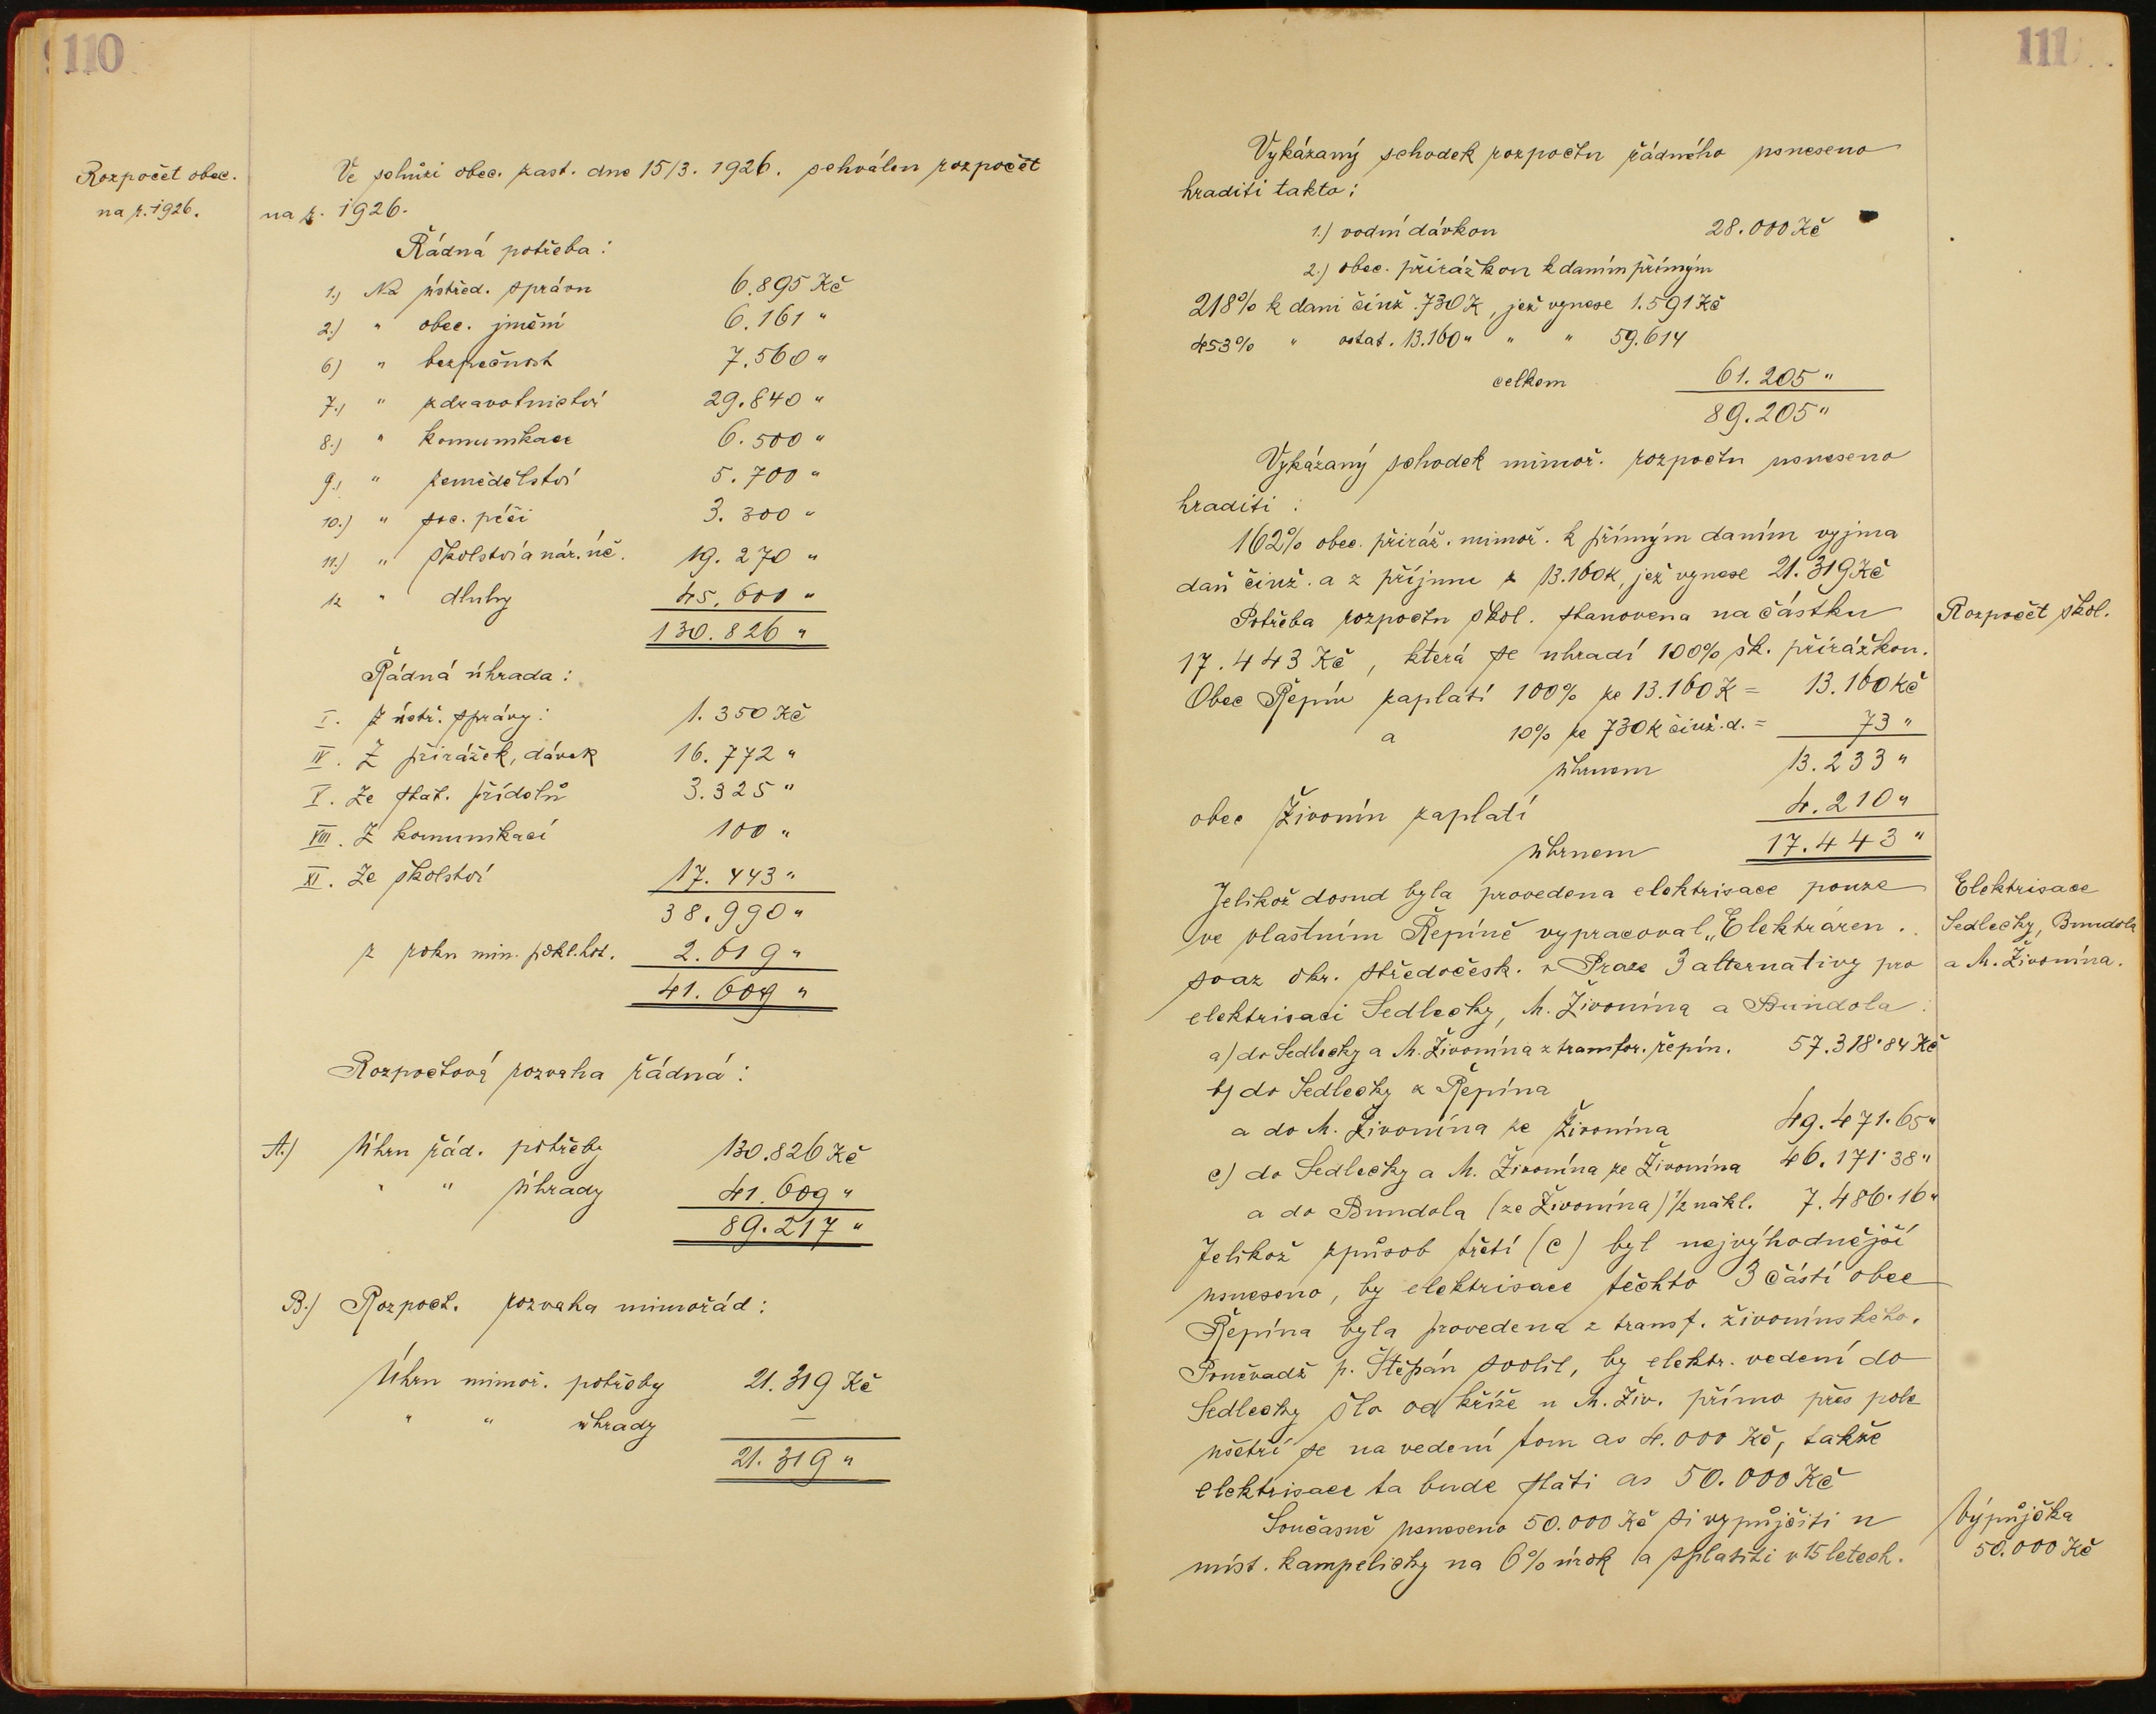 110
Rozpočet obec.
na r. 1926.
Ve schůzi obec. zast. dne 15/3. 1926. schválen rozpočet
na r. 1926.
Řádná potřeba :
1.) Na ústřed. správu 6.895 Kč
2.) " obec. jmění 6.161 "
6) " bezpečnost 7.560 "
7.) " zdravotnictví 29.840 "
8.) " komunikace 6.500 "
9.) " zemědělství 5.700 "
10.) " soc. péči 3.300 "
11.) " školství a nár. úč. 19.270 "
12 " dluhy 45.600 "
130.826 "
Řádná úhrada :
I. Z ústř. správy : 1.350 Kč
IV. Z přirážek, dávek 16.772 "
V. Ze stat. přídělů 3.325 "
VIII. Z komunikací 100 "
XI. Ze školství 17.443 "
38.990 "
z roku min. pokl. hot. 2.619 "
41.609 "
Rozpočtová rozvaha řádná :
A.) Úhrn řád. potřeby 130.826 Kč
" " úhrady 41.609 "
89.217 "
B.) Rozpoct. rozvaha mimořád :
Úhrn mimoř. potřeby 21.319 Kč
" " úhrady —
21.319 "
111
Vykázaný schodek rozpočtu řádného usneseno
hraditi takto :
1.) vodní dávkou 28.000 Kč
2.) obec. přirážkou k daním přímým
218% k dani činž. 730 K, jež vynese 1.591 Kč
453% " ostat. 13.160 " " " 59.614
celkem 61.205 "
89.205 "
Vykázaný schodek mimoř. rozpočtu usneseno
hraditi :
162% obec. přiráž. mimoř. k přímým daním vyjma
daň činž. a z příjmu z 13.160 K, jež vynese 21.319 Kč
Potřeba rozpočtu škol. stanovena na částku
Rozpočet škol.
17.443 Kč, která se uhradí 100% šk. přirážkou.
Obec Řepín zaplatí 100% ze 13.160 K = 13.160 Kč
a 10% ze 730 K činž. d. = 73 "
úhrnem 13.233 "
obec Živonín zaplatí 4.210 "
úhrnem 17.443 "
Jelikož dosud byla provedena elektrisace pouze
Elektrisace
ve vlastním Řepíně vypracoval „Elektráren.
Sedlečky, Bundola
svaz okr. středočesk. v Praze 3 alternativy pro
a M. Živonína.
elektrisaci Sedlečky, M. Živonína a Bundola :
a) do Sedlečky a M. Živonína z transfor. řepín. 57.318·84 Kč
b) do Sedlečky z Řepína
a do M. Živonína ze Živonína 49.471·65 "
c) do Sedlečky a M. Živonína ze Živonína 46.171·38 "
a do Bundola (ze Živonína) 1/2 nákl. 7.486·16 "
Jelikož způsob třetí (c) byl nejvýhodnější
usneseno, by elektrisace těchto 3 částí obce
Řepína byla provedena z transf. živonínského.
Poněvadž p. Štěpán svolil, by elektr. vedení do
Sedlečky šlo od kříže u M. Živ. přímo přes pole
ušetří se na vedení tom as 4.000 Kč, takže
elektrisace ta bude státi as 50.000 Kč
Současně usneseno 50.000 Kč si vypůjčiti u
Výpůjčka
míst. kampeličky na 6% úrok a splatiti v 15 letech.
50.000 Kč